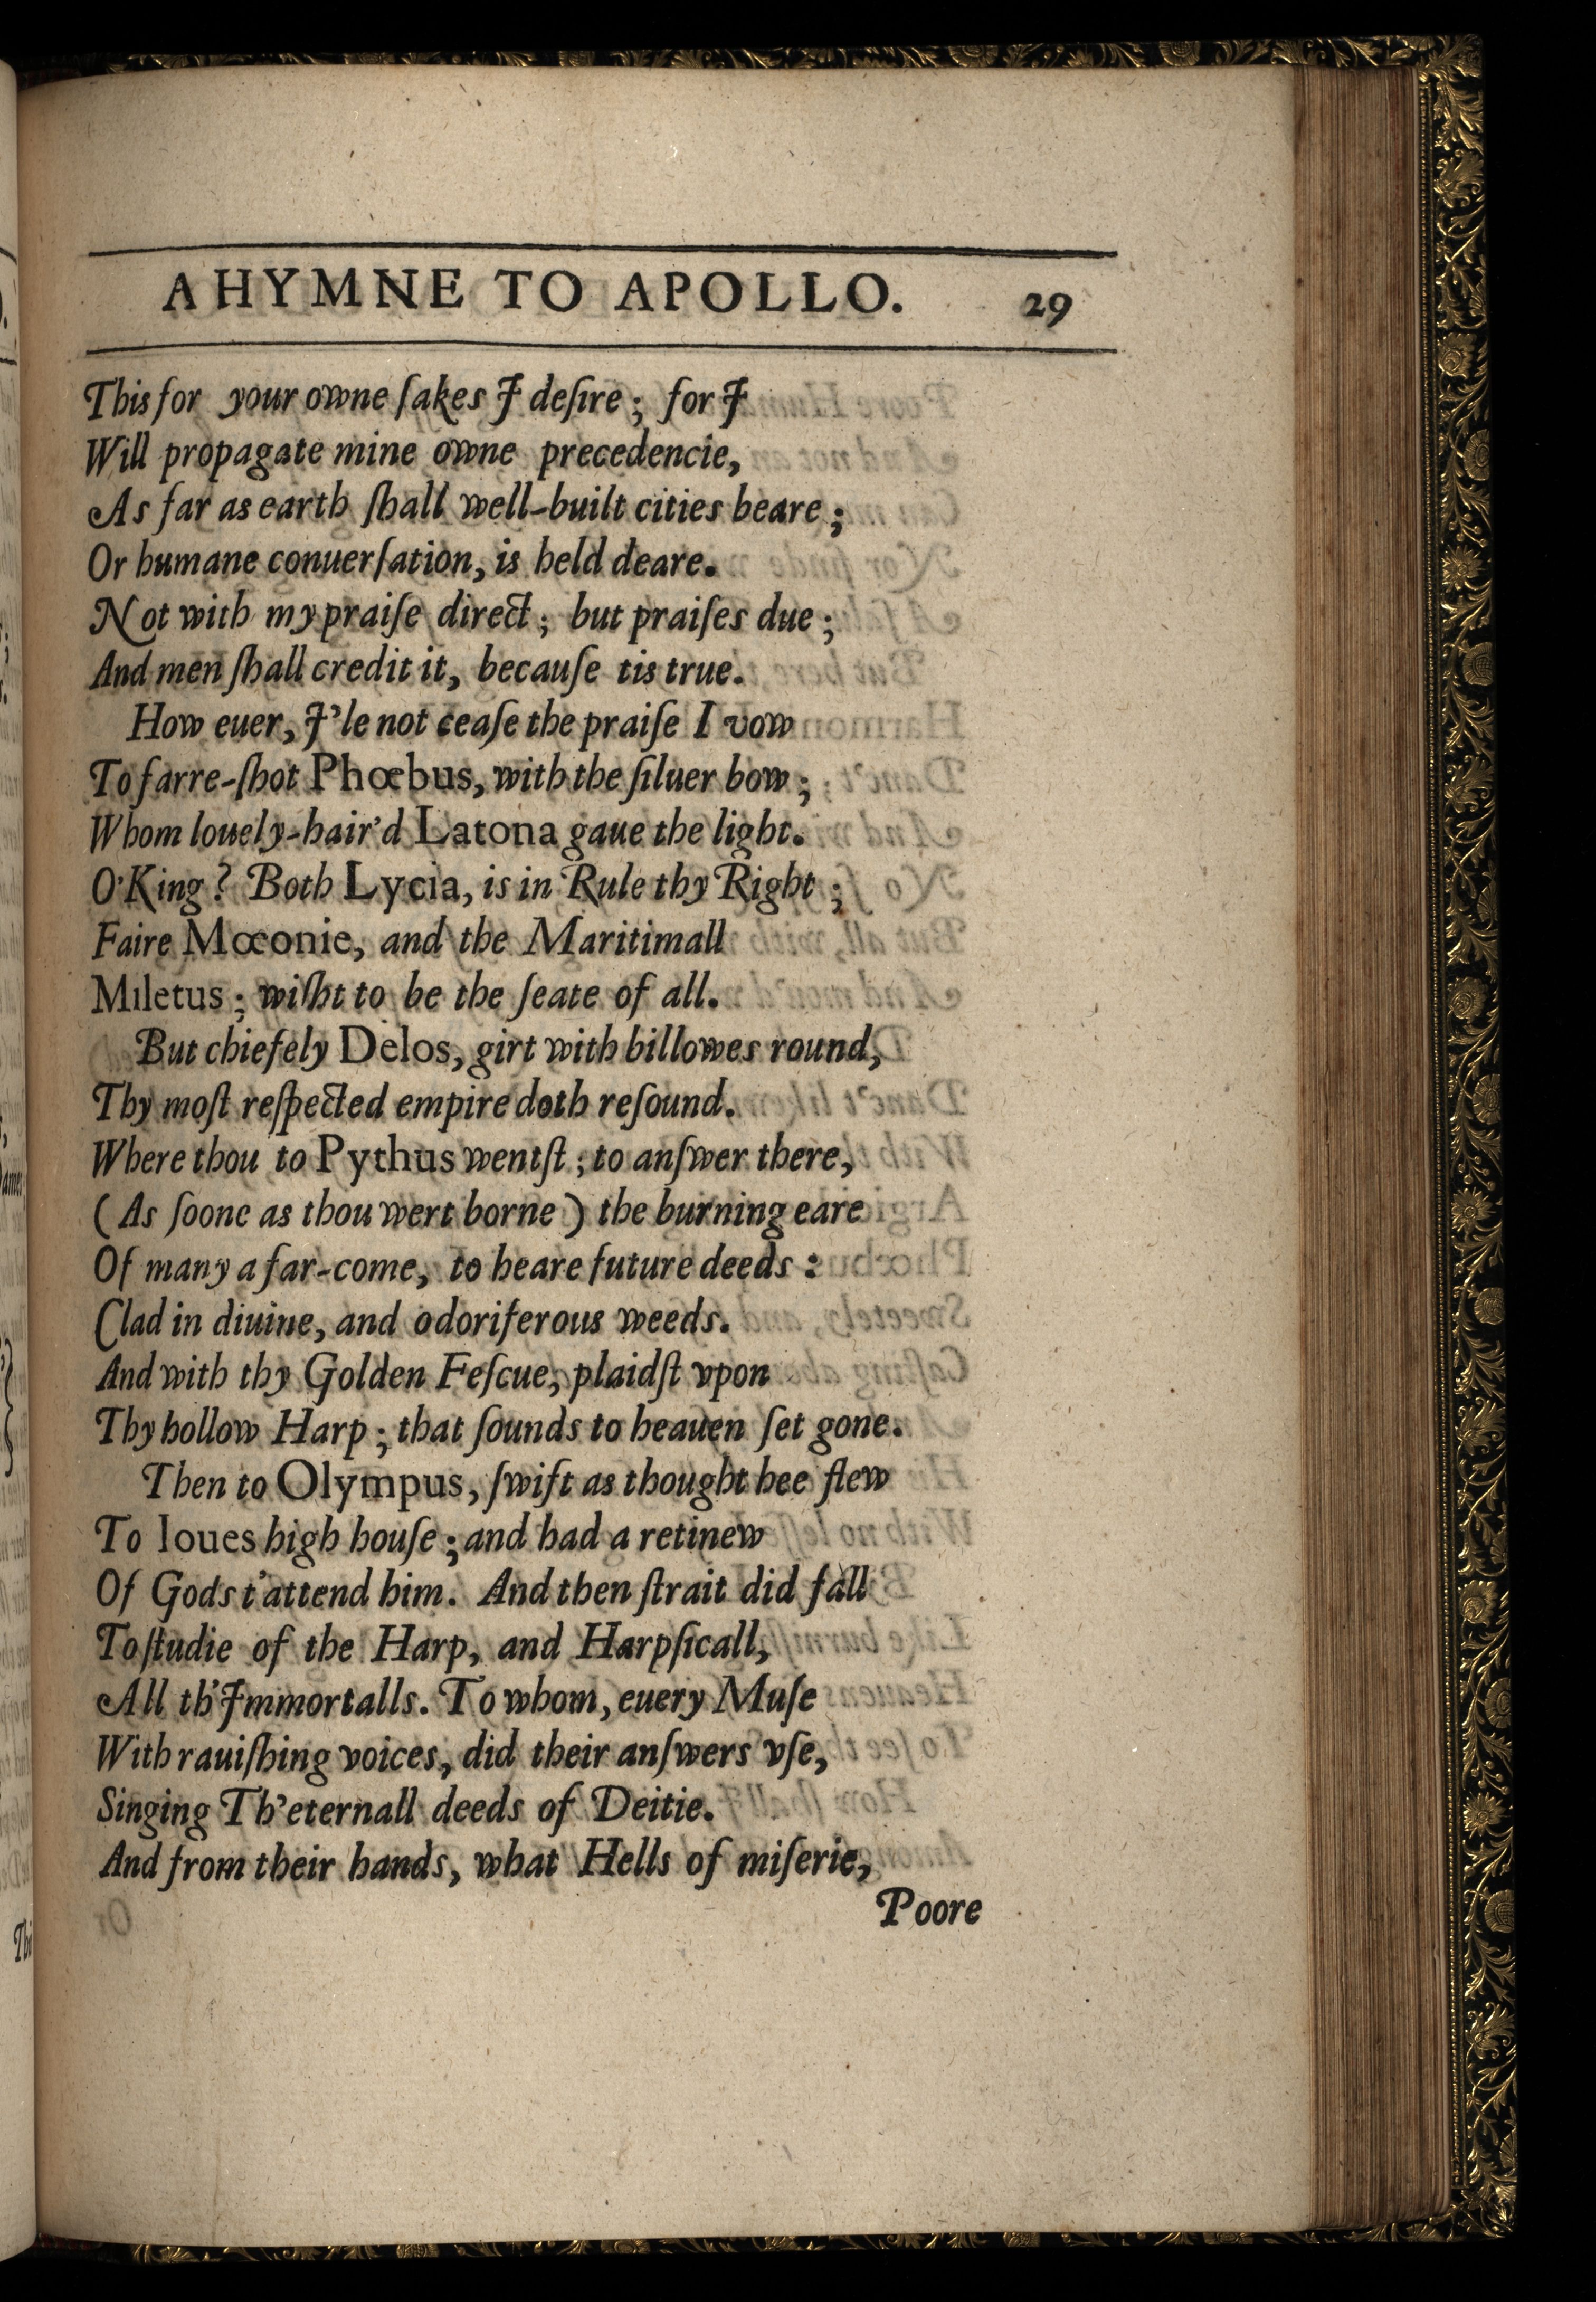 A HYMNE TO APOLLO. 29
This for your owne ſakes I deſire; for I
Will propagate mine owne precedencie,
As far as earth ſhall well-built cities beare;
Or humane conuerſation, is held deare.
Not with my praiſe direct; but praiſes due;
And men ſhall credit it, becauſe tis true.
How euer, I'le not ceaſe the praiſe I vow
To farre-ſhot Phœbus, with the ſiluer bow;
Whom louely-hair'd Latona gaue the light.
O King? Both Lycia, is in Rule thy Right;
Faire Mœonie, and the Maritimall
Miletus; wiſht to be the ſeate of all.
But chiefely Delos, girt with billowes round,
Thy moſt reſpected empire doth reſound.
Where thou to Pythus wentſt; to anſwer there,
(As ſoone as thou wert borne) the burning eare
Of many a far-come, to heare future deeds:
Clad in diuine, and odoriferous weeds.
And with thy Golden Feſcue, plaidſt vpon
Thy hollow Harp; that ſounds to heauen ſet gone.
Then to Olympus, ſwift as thought hee flew
To Ioues high houſe; and had a retinew
Of Gods t'attend him. And then ſtrait did fall
To ſtudie of the Harp, and Harpſicall,
All th'Immortalls. To whom, euery Muſe
With rauiſhing voices, did their anſwers vſe,
Singing Th'eternall deeds of Deitie.
And from their hands, what Hells of miſerie,
Poore